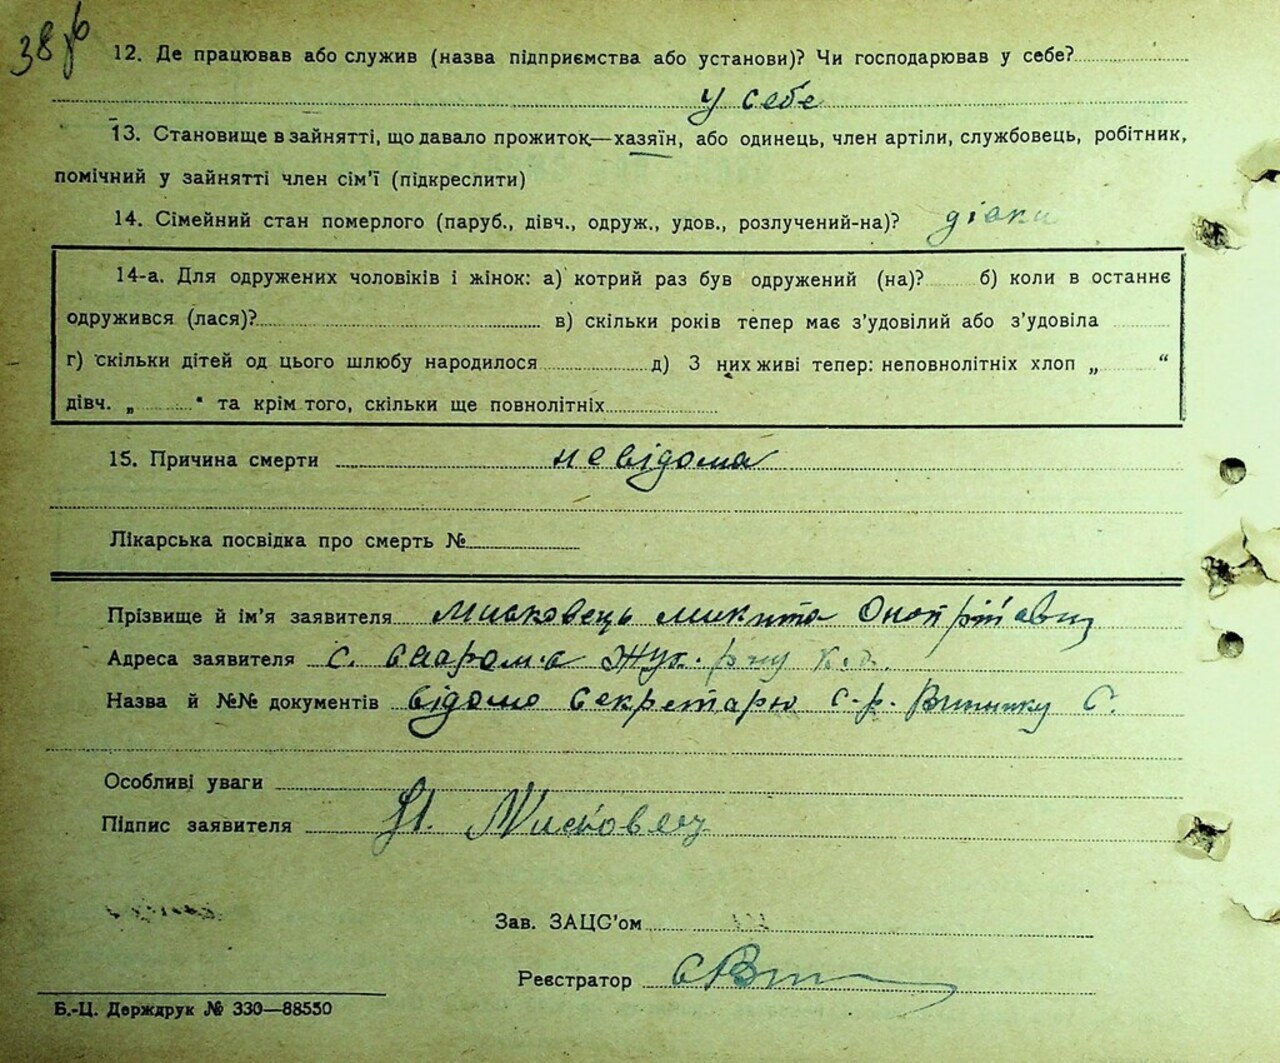 12. Де працював або служив (назва підприємства або установи)? Чи господарював у себе?
у себе
13. Становище в зайнятті, що давало прожиток—хазяїн, або одинець, член артіли, службовець, робітник,
помічний у зайнятті член сім'ї (підкреслити)
14. Сімейний стан померлого (паруб., дівч., одруж., удов., розлучений-на)?
14-а. Для одружених чоловіків і жінок: а) котрий раз був одружений (на)? б) коли в останнє
одружився (лася)? в) скільки років тепер має з'удовілий або з'удовіла
г) скільки дітей од цього шлюбу народилося д) З них живі тепер: неповнолітніх хлоп „ “
дівч. „ “ та крім того, скільки ще повнолітніх
15. Причина смерти невідома
Лікарська посвідка про смерть №
Прізвище й ім'я заявителя Мисковець Микита
Адреса заявителя с.
Назва й №№ документів відомо секретарю с-р. С.
Особливі уваги
Підпис заявителя Мисковец
Зав. ЗАЦС'ом
Реєстратор
Б.-Ц. Держдрук № 330—88550